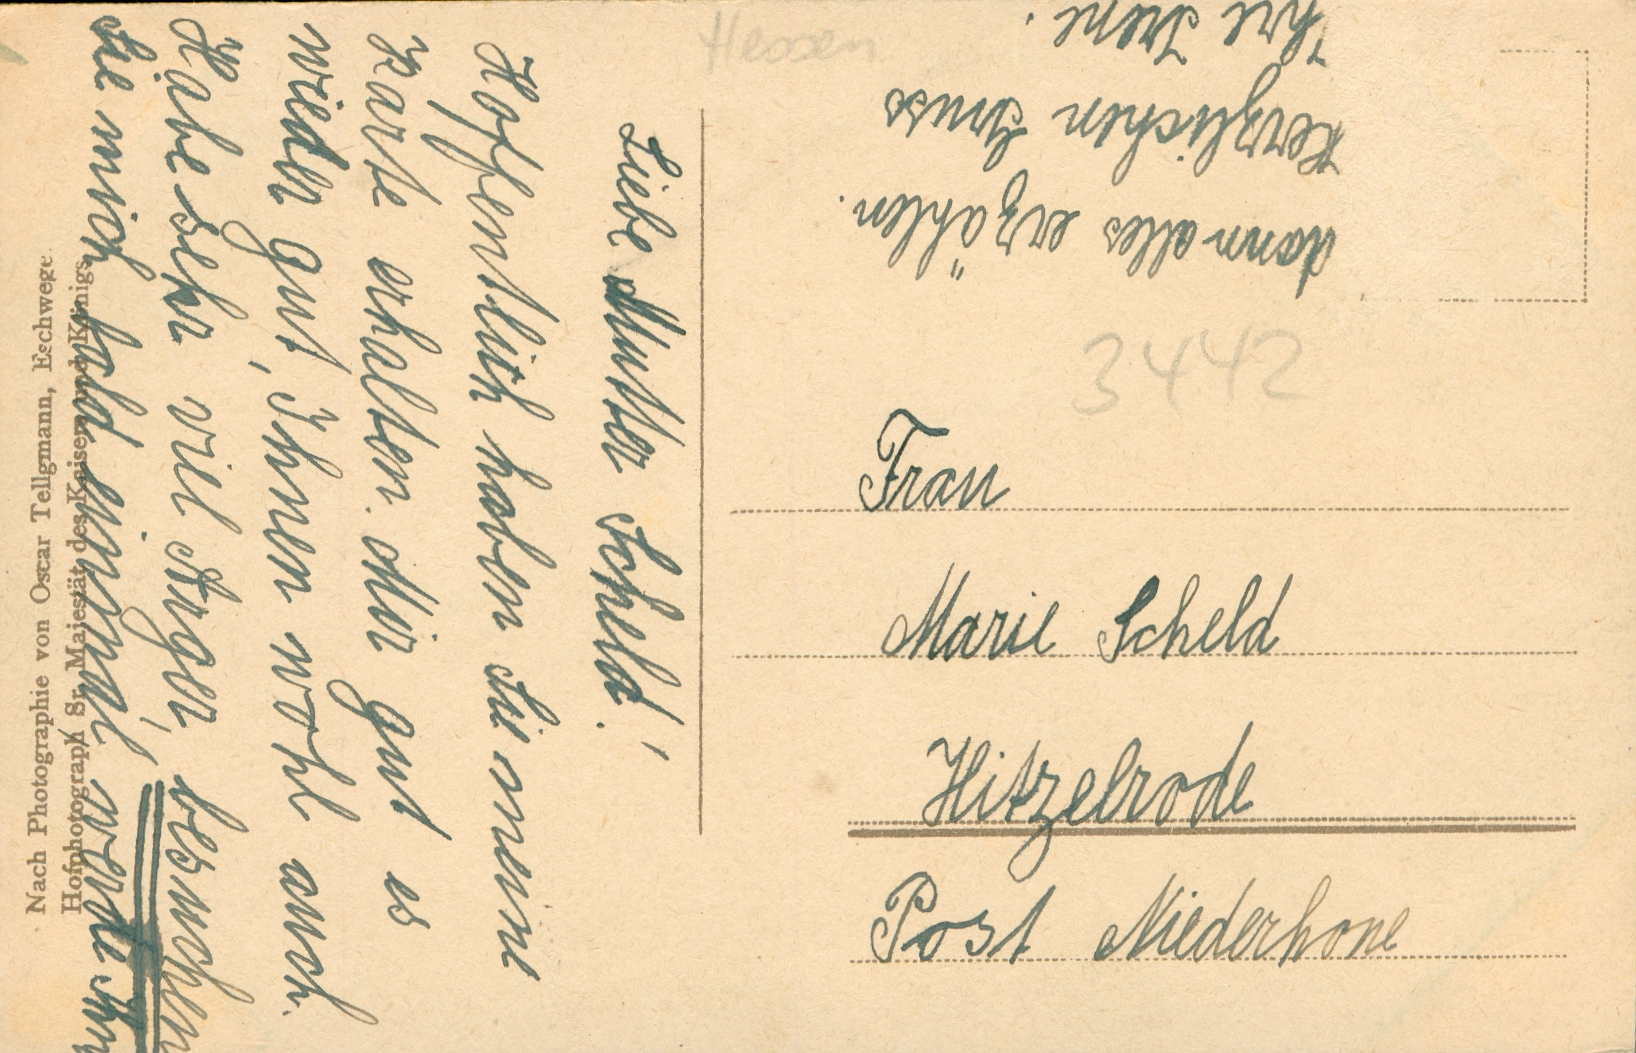 Hessen
Liebe Mutter Scheld!
Hoffentlich haben Sie meine
Karte erhalten. Mir gut es
wieder gut, Ihnen wohl auch.
Habe sehr viel Ärger, besuchen
Sie mich bald einmal, werde Ihn
dann alles erzählen.
Herzlichen Gruss
Ihre Irene.
3442
Frau
Marie Scheld
Hitzelrode
Post Niederhone
Nach Photographie von Oscar Tellgmann, Eschwege
Hofphotograph Sr. Majestät des Kaisers und Königs.